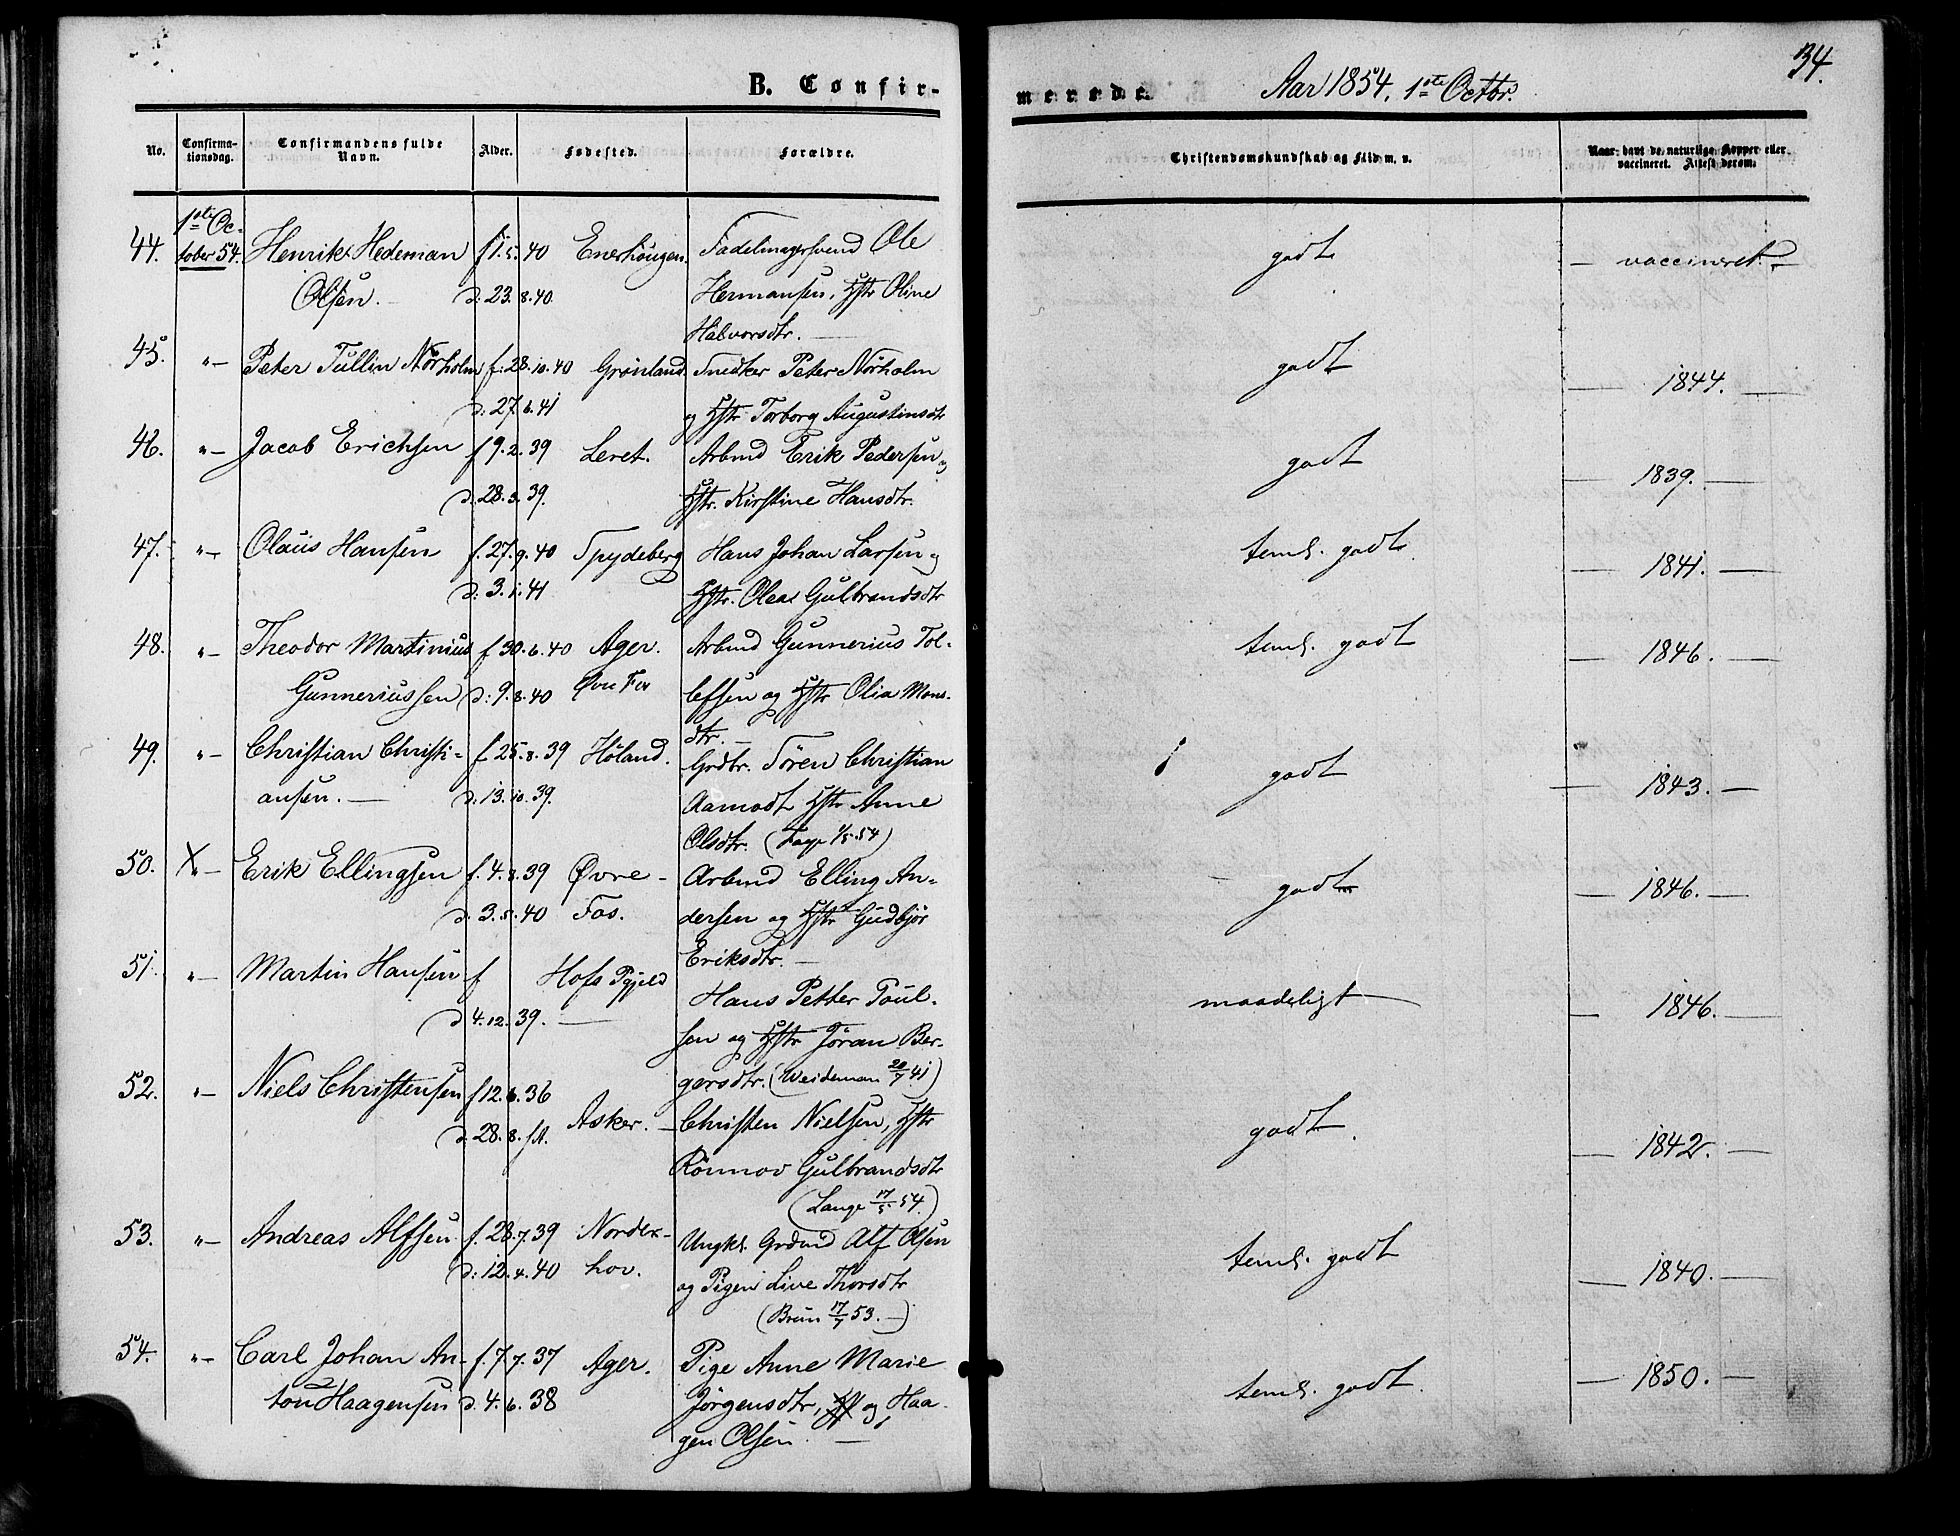 B. Confir-
merede. Aar 1854. 1ste Octbr. 34.
No. Confirma-tionsdag. Confirmandens fulde Navn. Alder. Fødested. Forældre. Christendomskundskab og Flid m. v. Naar havt de naturlige Kopper eller vaccineret. Attest derom.
44. 1ste Oc- Henrik Hedeman f 1. 5. 40 Enerhougen. Fadelmagersvend Ole godt — vaccineret. —
tober 54. Olsen. — d: 23. 8. 40 Hermansen, Hstr Oline
Halvorsdtr. —
45. "— Peter Tullin Nörholm f: 28. 10. 40 Grønland Snedker Peter Nörholm godt — 1844. —
d: 27. 6. 41 og Hstr Torborg Augustinsdtr
46. "— Jacob Erichsen f 9. 2. 39 Leret. Arbmd Erik Pedersen og godt — 1839. —
d. 28. 3. 39. Hstr. Kirstine Hansdtr.
47. "— Olaus Hansen f. 27. 9. 40 Spydeberg Hans Johan Larsen og teml. godt — 1841. —
d: 3. 1. 41 Hstr. Olea Gulbrandsdtr
48. "— Theodor Martinius f 30. 6. 40 Ager. Arbmd Gunnerius Tol- teml. godt — 1846. —
Gunneriussen d: 9. 8. 40 Øvre Fos lefsen og Hstr Olia Mons-
dtr. —
49. "— Christian Christi- f 25. 8. 39 Höland. Grdbr. Sören Christian godt — 1843. —
ansen. — d: 13. 10. 39. Aamodt Hstr Anne
Olsdtr. ( 1/5 54)
50. X "— Erik Ellingsen f. 4. 8. 39 Øvre - Arbmd Elling An- godt — 1846. —
d. 3. 5. 40 Fos. dersen og Hstr Gudbjör
Eriksdtr. —
51. "— Martin Hansen f Hofs Pgjeld Hans Petter Poul- maadeligt — 1846. —
d 4. 12. 39. — sen og Hstr Jöran Ber-
gersdtr. (Weideman 20/7 41)
52. "— Niels Christensen f 12. 6. 36 Asker. — Christen Nielsen, Hstr godt. — 1842. —
d. 28. 8. s.A. Rönnov Gulbrandsdtr
(Lange 17/5 54.)
53. "— Andreas Alfsen f. 28. 7. 39 Norder- Ungkl. Grdmd Alf Olsen teml. godt — 1840. —
d: 12. 4. 40 hov. og Pigen Live Thorsdtr
(Brun 17/7 53. —)
54. "— Carl Johan An- f. 7. 7. 37 Ager. Pige Anne Marie teml. godt. — 1850. —
ton Haagensen d. 4. 6. 38 Jörgensdtr, og Haa-
gen Olsen. —